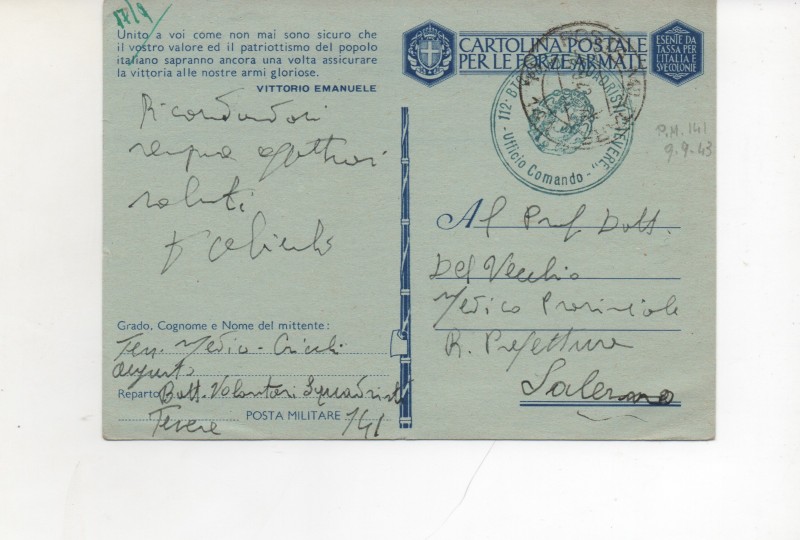 Unito a voi come non mai sono sicuro che
il vostro valore ed il patriottismo del popolo
italiano sapranno ancora una volta assicurare
la vittoria alle nostre armi gloriose.
VITTORIO EMANUELE
Ricordandovi
sempre
saluti
CARTOLINA POSTALE
PER LE FORZE ARMATE
ESENTE DA
TASSA PER
L'ITALIA E
SVE COLONIE
112° SQUADRISTI "TEVERE"
- Ufficio Comando -
P.M. 141
9.9.43
Al Prof. Dott.
Del Vecchio
Medico Provinciale
R. Prefettura
Salerno
Grado, Cognome e Nome del mittente:
Ten. Medico -
Augusto
Reparto Batt. Volontari Squadristi
Tevere POSTA MILITARE 141